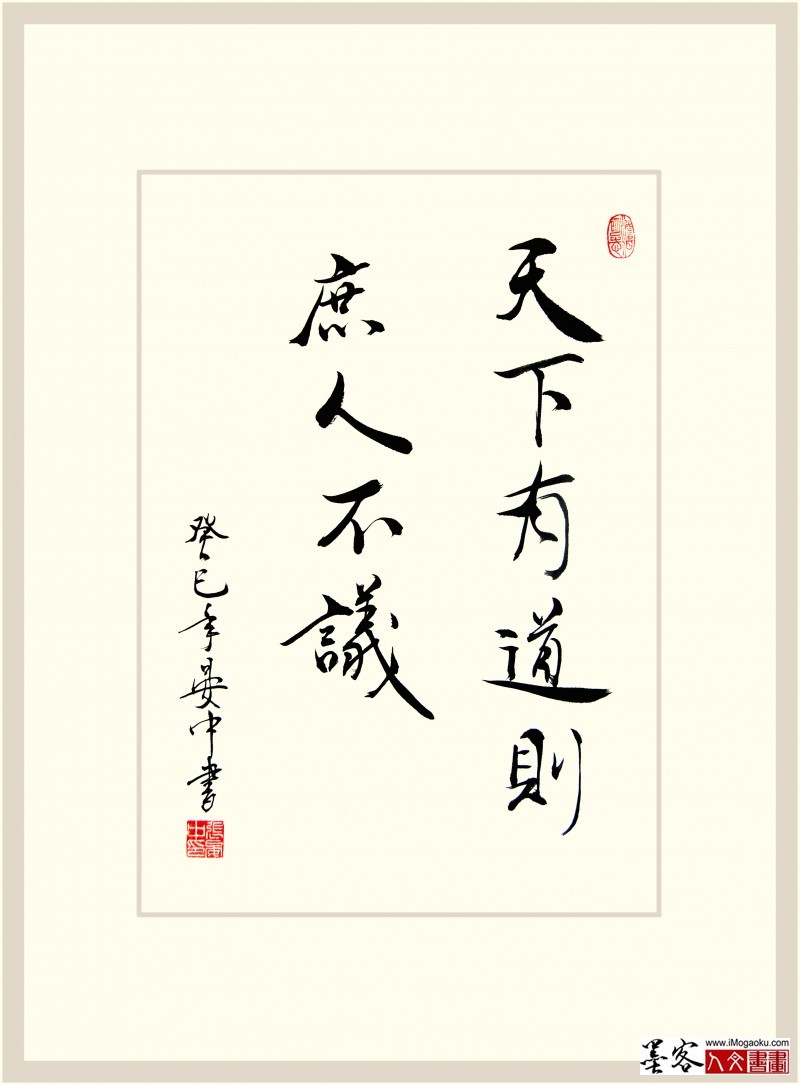 天下有道則
庶人不議
癸巳年晏中書
www.iMogaoku.com
墨客
人文書畫